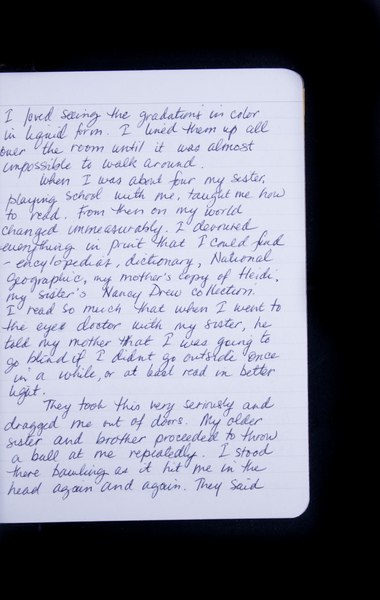 I loved seeing the gradations in color
in liquid form. I lined them up all
over the room until it was almost
impossible to walk around.
When I was about four my sister,
playing school with me, taught me how
to read. From then on my world
changed immeasurably. I devoured
everything in print that I could find
- encylopedias, dictionary, National
Geographic, my mother's copy of Heidi,
my sister's Nancy Drew collection.
I read so much that when I went to
the eye doctor with my sister, he
told my mother that I was going to
go blind if I didn't go outside once
in a while, or at least read in better
light.
They took this very seriously and
dragged me out of doors. My older
sister and brother proceeded to throw
a ball at me repeatedly. I stood
there bawling as it hit me in the
head again and again. They said